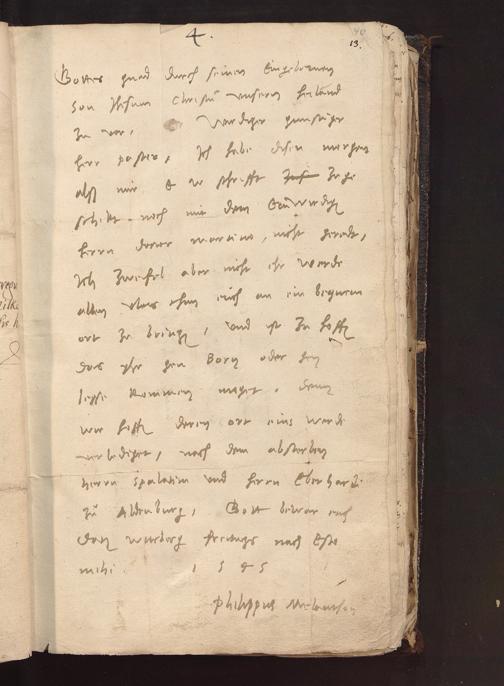 4.
13.
Gottes gnad durch seinen Eingebornen
son Ihesum Christum unsern heiland
zu vor, Wirdiger gunstiger
herr pastor, Ich habe disen morgen
alss mir E w schrifft zuge
schikt noch mit dem Ehrwirdigen
herrn doctor martino, nicht geredt,
Ich zweifel aber nicht ehr werde
allen vleis thun euch an ein bequem
ort zu bringen, und ist zu hoffen
das yhr gen Born oder gen
kommen moget, denn
wir hoffen deren ort eins werde
erlediget, nach dem absterben
herrn Spalatini und herrn Eberhardi
zu Aldenburg, Gott bewar euch
Datum witeberg freitags nach Esto
mihi 1545
Philippus Melanthon